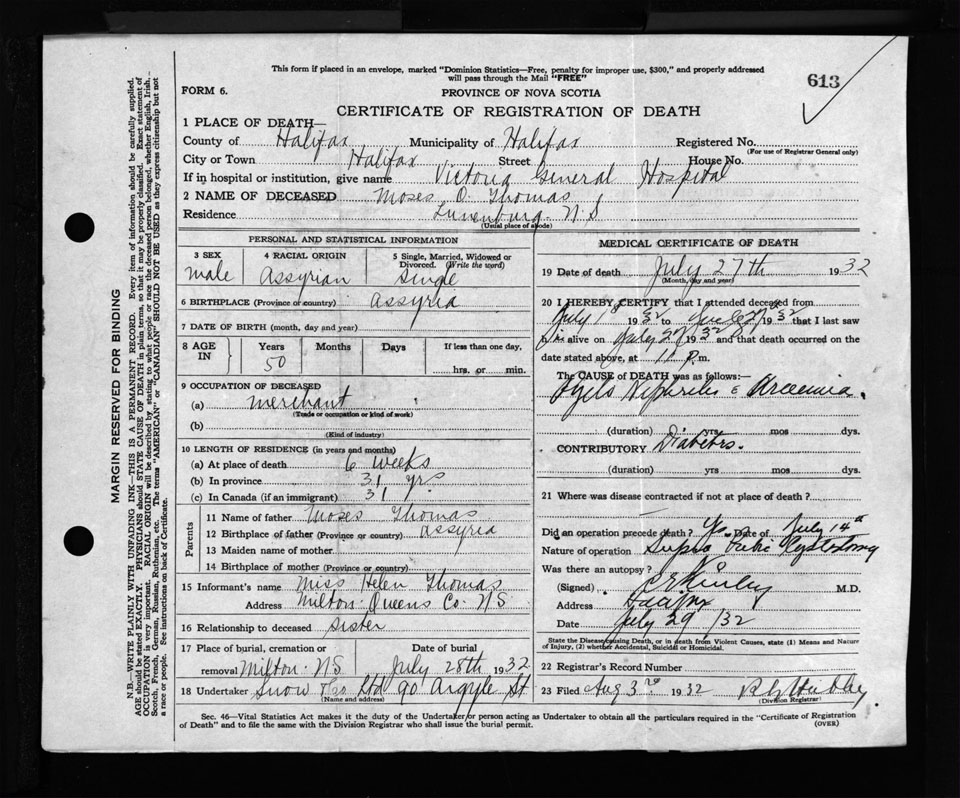 This form if placed in an envelope, marked "Dominion Statistics—Free, penalty for improper use, $300," and properly addressed
will pass through the Mail "FREE"
613
FORM 6.
PROVINCE OF NOVA SCOTIA
CERTIFICATE OF REGISTRATION OF DEATH
1 PLACE OF DEATH—
County of Halifax Municipality of Halifax Registered No.
(For use of Registrar General only)
City or Town Halifax Street House No.
If in hospital or institution, give name Victoria General Hospital
2 NAME OF DECEASED Moses O. Thomas
Residence Lunenburg N.S
(Usual place of abode)
PERSONAL AND STATISTICAL INFORMATION
3 SEX 4 RACIAL ORIGIN 5 Single, Married, Widowed or
Divorced. (Write the word)
male Assyrian Single
6 BIRTHPLACE (Province or country) Assyria
7 DATE OF BIRTH (month, day and year)
8 AGE IN Years Months Days If less than one day,
50 hrs. or min.
9 OCCUPATION OF DECEASED
(a) merchant
(Trade or occupation or kind of work)
(b)
(Kind of industry)
10 LENGTH OF RESIDENCE (in years and months)
(a) At place of death 6 weeks
(b) In province 31 yrs
(c) In Canada (if an immigrant) 31
Parents
11 Name of father Moses Thomas
12 Birthplace of father (Province or country) Assyria
13 Maiden name of mother
14 Birthplace of mother (Province or country)
15 Informant's name Miss Helen Thomas
Address Milton Queens Co. N S
16 Relationship to deceased Sister
17 Place of burial, cremation or Date of burial
removal Milton N S July 28th 1932
18 Undertaker Snow & Co Ltd 90 Argyle St
(Name and address)
MEDICAL CERTIFICATE OF DEATH
19 Date of death July 27th 1932
(Month, day and year)
20 I HEREBY CERTIFY that I attended deceased from
July 1st 1932 to 27 1932 that I last saw
alive on July 27 1932 and that death occurred on the
date stated above, at 11 P.m.
The CAUSE of DEATH was as follows:—
Pyelo Nephritis & Uraemia.
(duration) yrs mos dys.
CONTRIBUTORY Diabetes.
(duration) yrs mos dys.
21 Where was disease contracted if not at place of death?
Did an operation precede death? Yes Date of July 14th
Nature of operation Supra Pubic Cystostomy
Was there an autopsy? No
(Signed) M.D.
Address Halifax
Date July 29 /32
State the Disease causing Death, or in death from Violent Causes, state (1) Means and Nature
of Injury, (2) whether Accidental, Suicidal or Homicidal.
22 Registrar's Record Number
23 Filed Aug 3rd 1932
(Division Registrar)
Sec. 46—Vital Statistics Act makes it the duty of the Undertaker or person acting as Undertaker to obtain all the particulars required in the "Certificate of Registration
of Death" and to file the same with the Division Registrar who shall issue the burial permit.
(OVER)
MARGIN RESERVED FOR BINDING
N.B.—WRITE PLAINLY WITH UNFADING INK—THIS IS A PERMANENT RECORD. Every item of information should be carefully supplied.
AGE should be stated EXACTLY. PHYSICIANS should STATE CAUSE OF DEATH in plain terms, so that it may be properly classified. Exact statement of
OCCUPATION is very important. RACIAL ORIGIN will be described by stating to what people or race the deceased person belonged, whether English, Irish,
Scotch, French, German, Russian, Ruthenian, etc. The terms "AMERICAN" or "CANADIAN" SHOULD NOT BE USED as they express citizenship but not
a race or people. See instructions on back of Certificate.